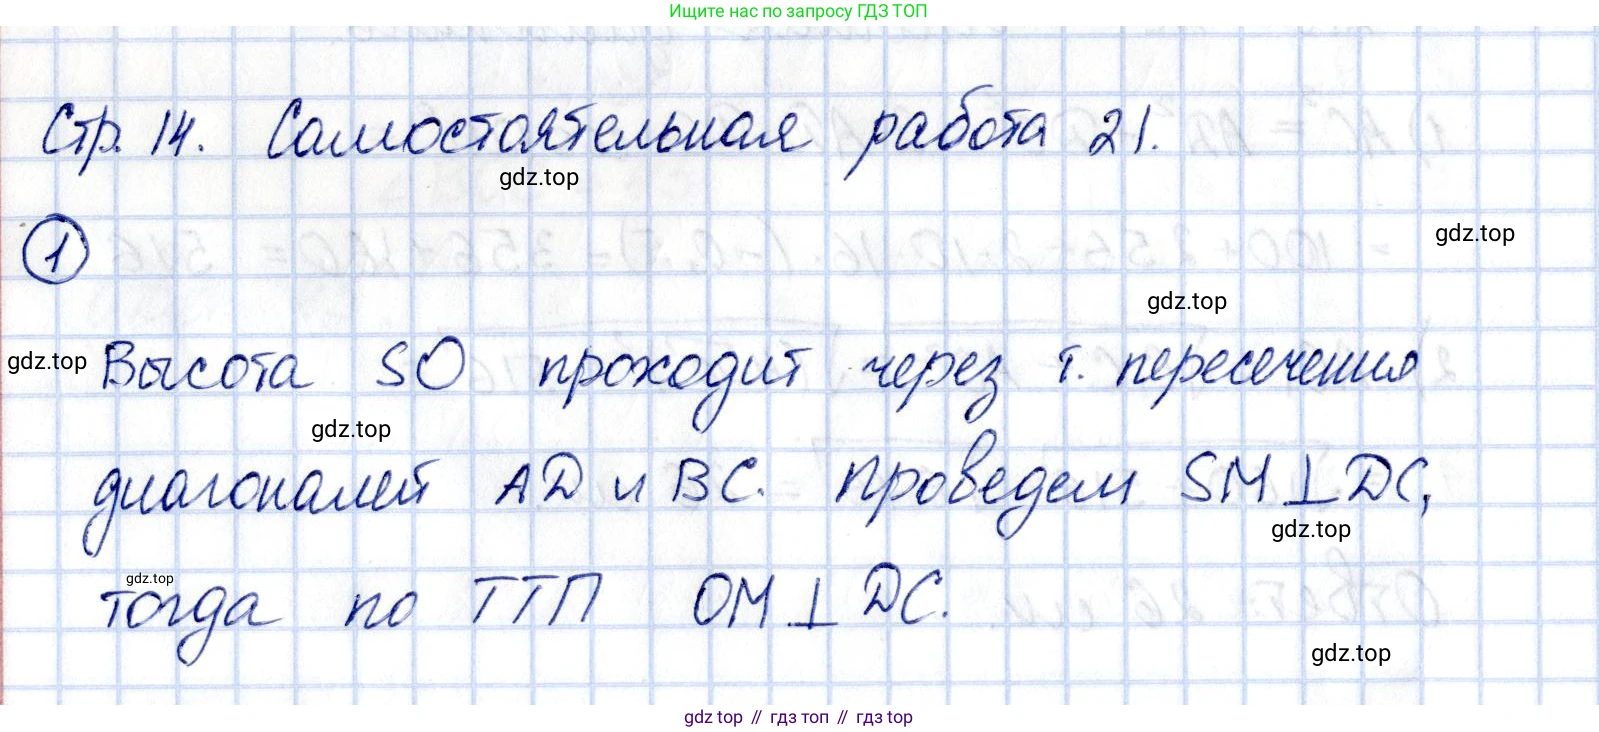 Ищите нас по запросу ГДЗ ТОП
Стр. 14. Самостоятельная работа 21.
gdz.top
1
gdz.top
gdz.top
gdz.top
Высота SO проходит через т. пересечения
gdz.top
диагоналей AD и BC. Проведем SM⊥DC,
gdz.top
gdz.top
тогда по ТТП OM⊥DC.
gdz.top
gdz top // гдз топ // гдз top